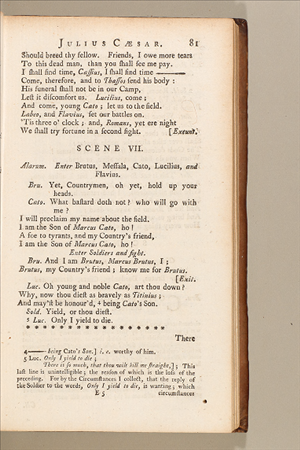 JULIUS CÆSAR. 81
Should breed thy fellow. Friends, I owe more tears
To this dead man, than you shall see me pay.
I shall find time, Cassius, I shall find time ———
Come, therefore, and to Thassos send his body :
His funeral shall not be in our Camp,
Lest it discomfort us. Lucilius, come ;
And come, young Cato ; let us to the field.
Labeo, and Flavius, set our battles on.
'Tis three o' clock ; and, Romans, yet ere night
We shall try fortune in a second fight. [Exeunt.
SCENE VII.
Alarum. Enter Brutus, Messala, Cato, Lucilius, and
Flavius.
Bru. Yet, Countrymen, oh yet, hold up your
heads.
Cato. What bastard doth not? who will go with
me ?
I will proclaim my name about the field.
I am the Son of Marcus Cato, ho !
A foe to tyrants, and my Country's friend,
I am the Son of Marcus Cato, ho !
Enter Soldiers and fight.
Bru. And I am Brutus, Marcus Brutus, I ;
Brutus, my Country's friend ; know me for Brutus.
[Exit.
Luc. Oh young and noble Cato, art thou down ?
Why, now thou diest as bravely as Titinius ;
And may'st be honour'd, 4 being Cato's Son.
Sold. Yield, or thou diest.
5 Luc. Only I yield to die.
* * * * * * * * * * * * * * * * *
There
4 —— being Cato's Son.] i. e. worthy of him.
5 Luc. Only I yield to die ;
There is so much, that thou wilt kill me straight,] ; This
last line is unintelligible ; the reason of which is the loss of the
preceding. For by the Circumstances I collect, that the reply of
the Soldier to the words, Only I yield to die, is wanting ; which
E 5 circumstances